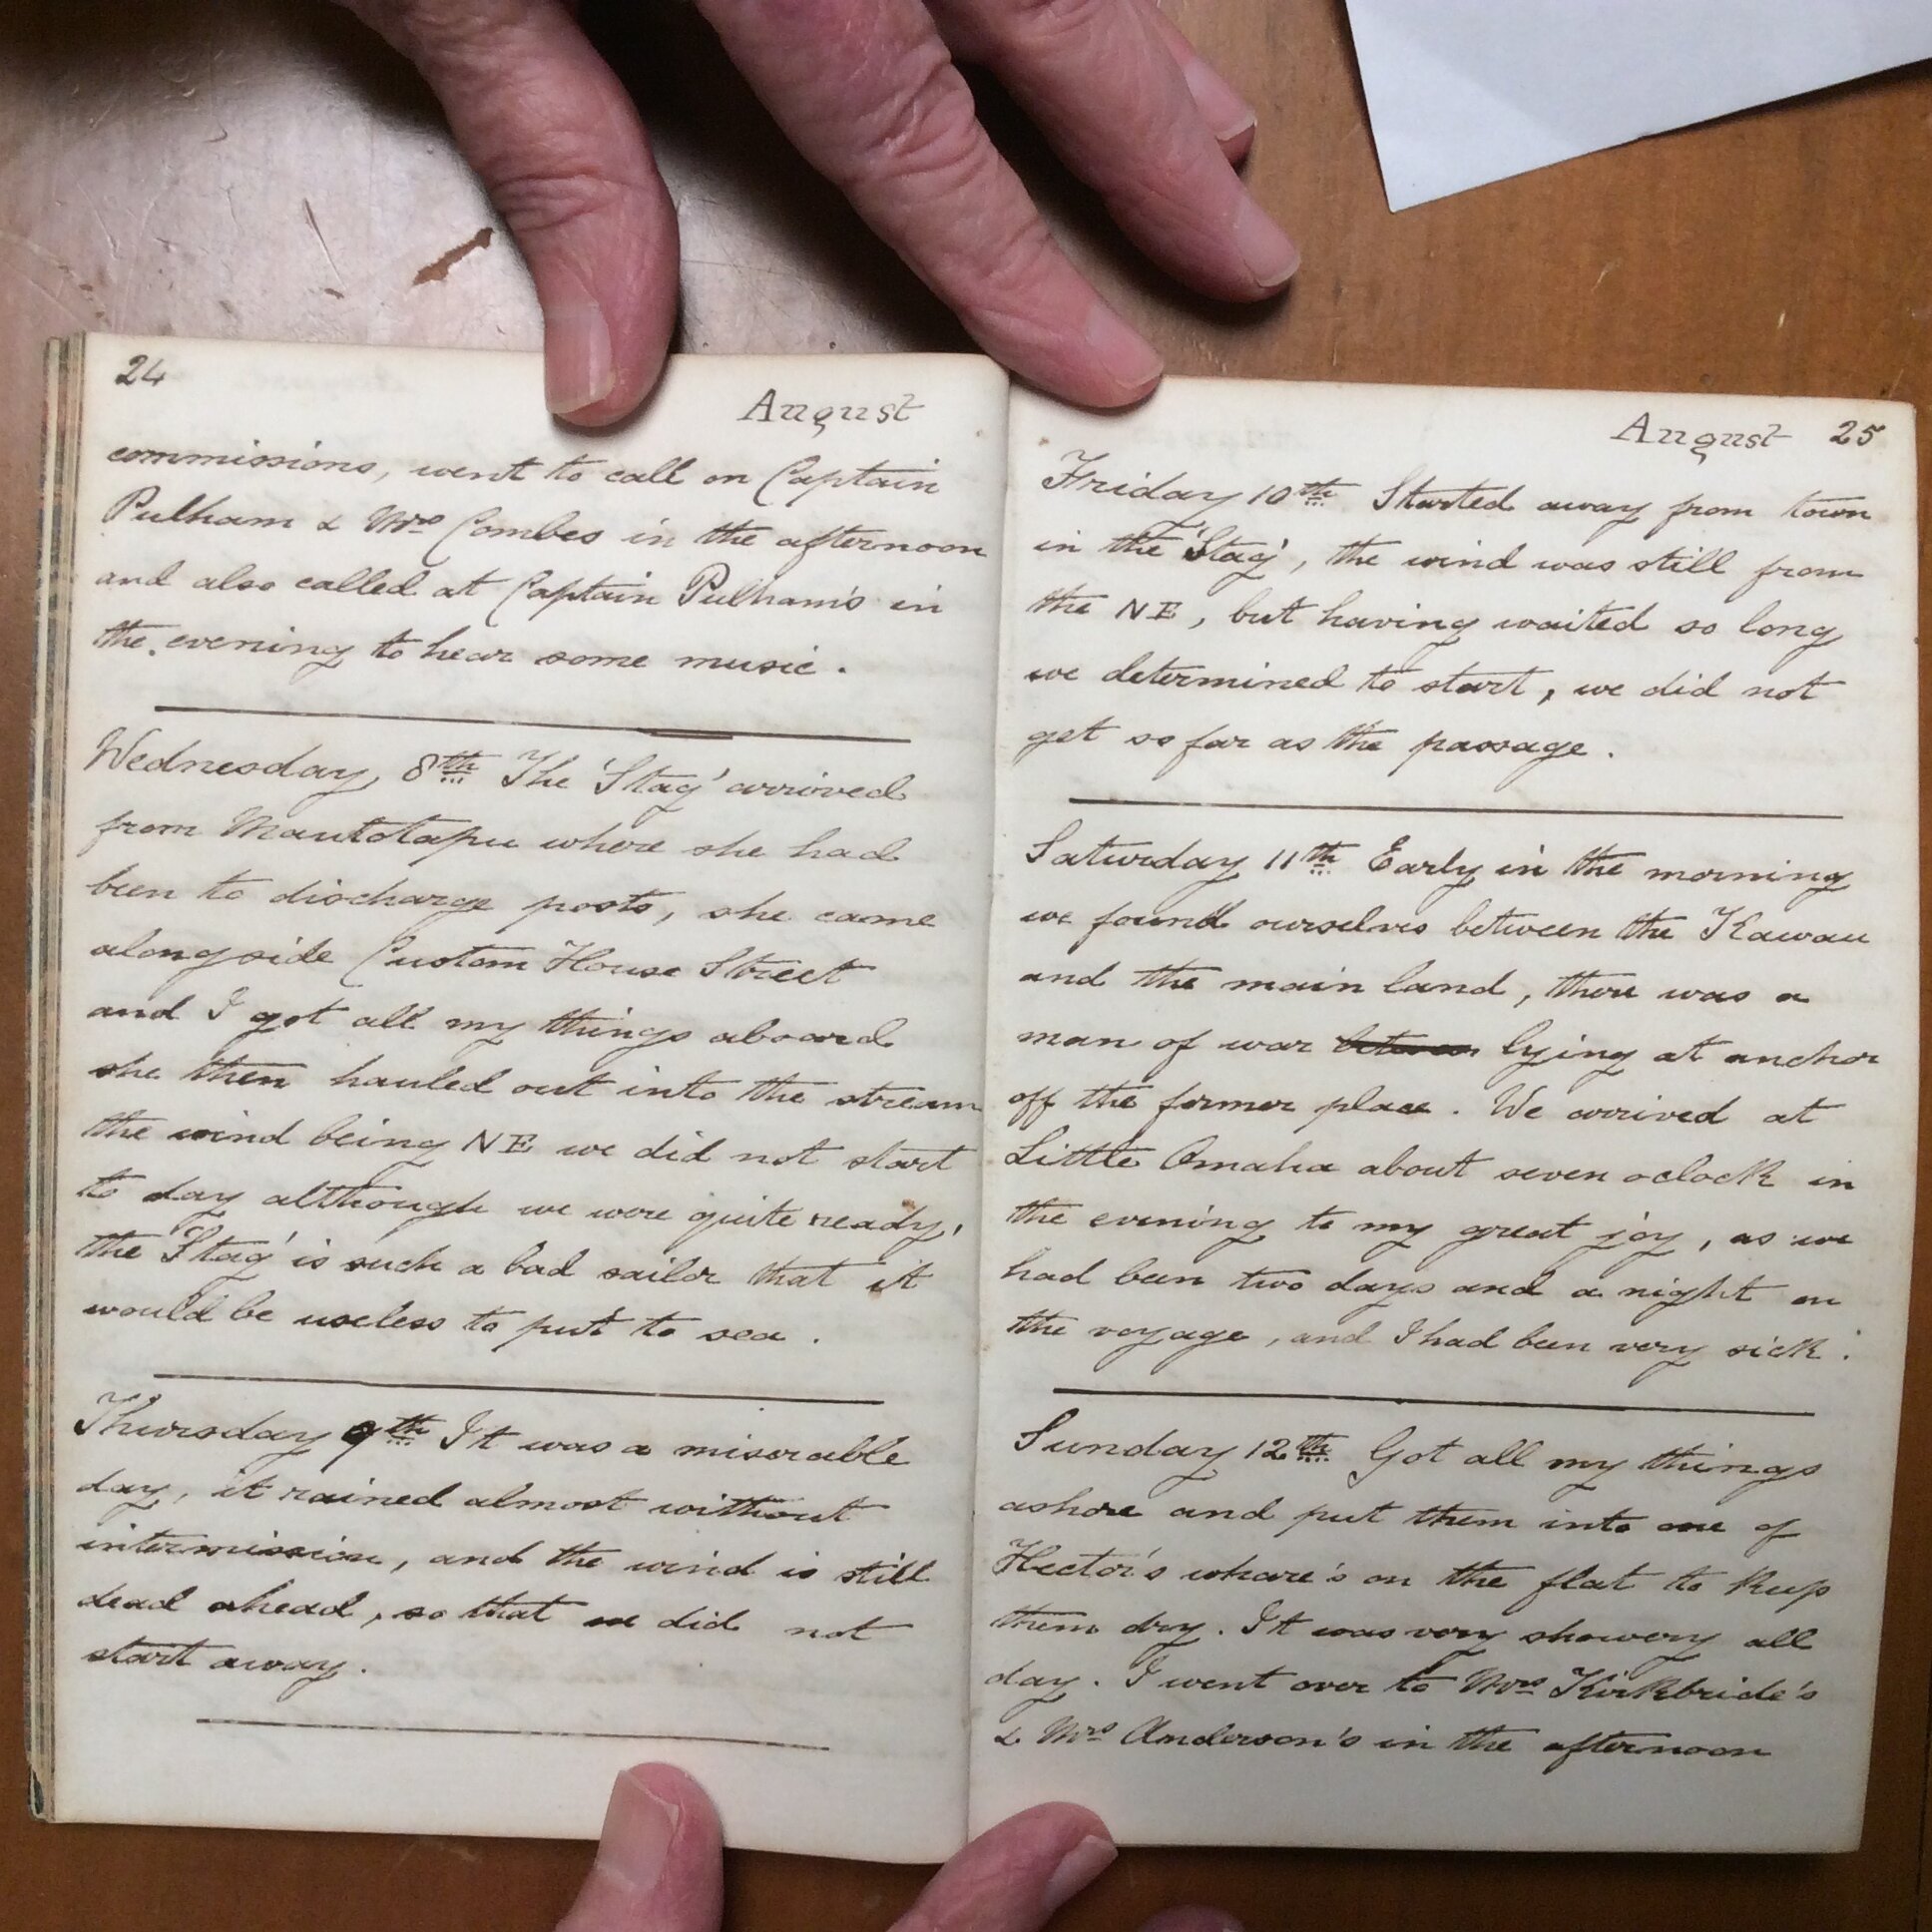 24
August
commissions, went to call on Captain
Pulham & Mrs Combes in the afternoon
and also called at Captain Pulham's in
the evening to hear some music.
Wednesday, 8th The 'Stag' arrived
from Mautotapu where she had
been to discharge posts, she came
alongside Custom House Street
and I got all my things aboard
she then hauled out into the stream
the wind being NE we did not start
to day although we were quite ready,
the 'Stag' is such a bad sailor that it
would be useless to put to sea.
Thursday 9th It was a miserable
day, it rained almost without
intermission, and the wind is still
dead ahead, so that we did not
start away.
August 25
Friday 10th Started away from town
in the 'Stag', the wind was still from
the NE, but having waited so long
we determined to start, we did not
get so far as the passage.
Saturday 11th Early in the morning
we found ourselves between the Kawau
and the main land, there was a
man of war between lying at anchor
off the former place. We arrived at
Little Omaha about seven oclock in
the evening to my great joy, as we
had been two days and a night on
the voyage, and I had been very sick.
Sunday 12th Got all my things
ashore and put them into one of
Hector's whare's on the flat to keep
them dry. It was very showery all
day. I went over to Mrs Kirkbride's
& Mrs Anderson's in the afternoon